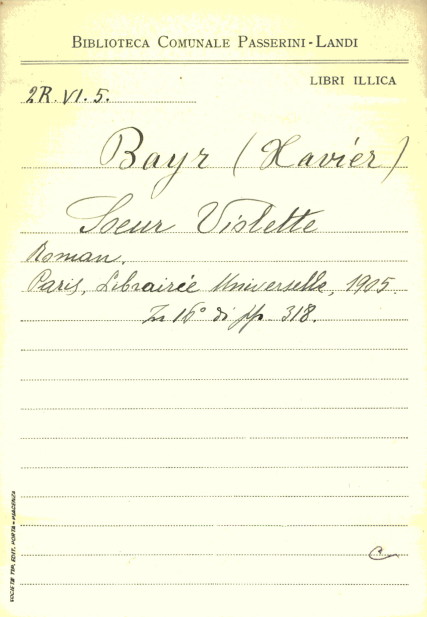 BIBLIOTECA COMUNALE PASSERINI-LANDI
LIBRI ILLICA
2R. VI. 5.
Bayr (Xavier)
Soeur Violette
Roman.
Paris, Librairée Universelle, 1905.
In 16° di pp. 318.
C
SOCIETÀ TIP. EDIT. PORTA - PIACENZA